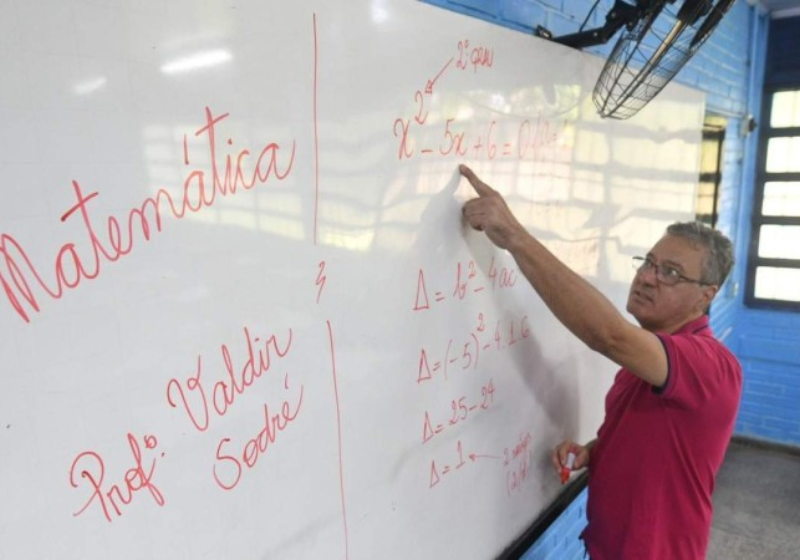 Matemática
Profº. Valdir
Sodré
2º grau
x² - 5x + 6 = 0
Δ = b² - 4ac
Δ = (-5)² - 4.1.6
Δ = 25 - 24
Δ = 1
2